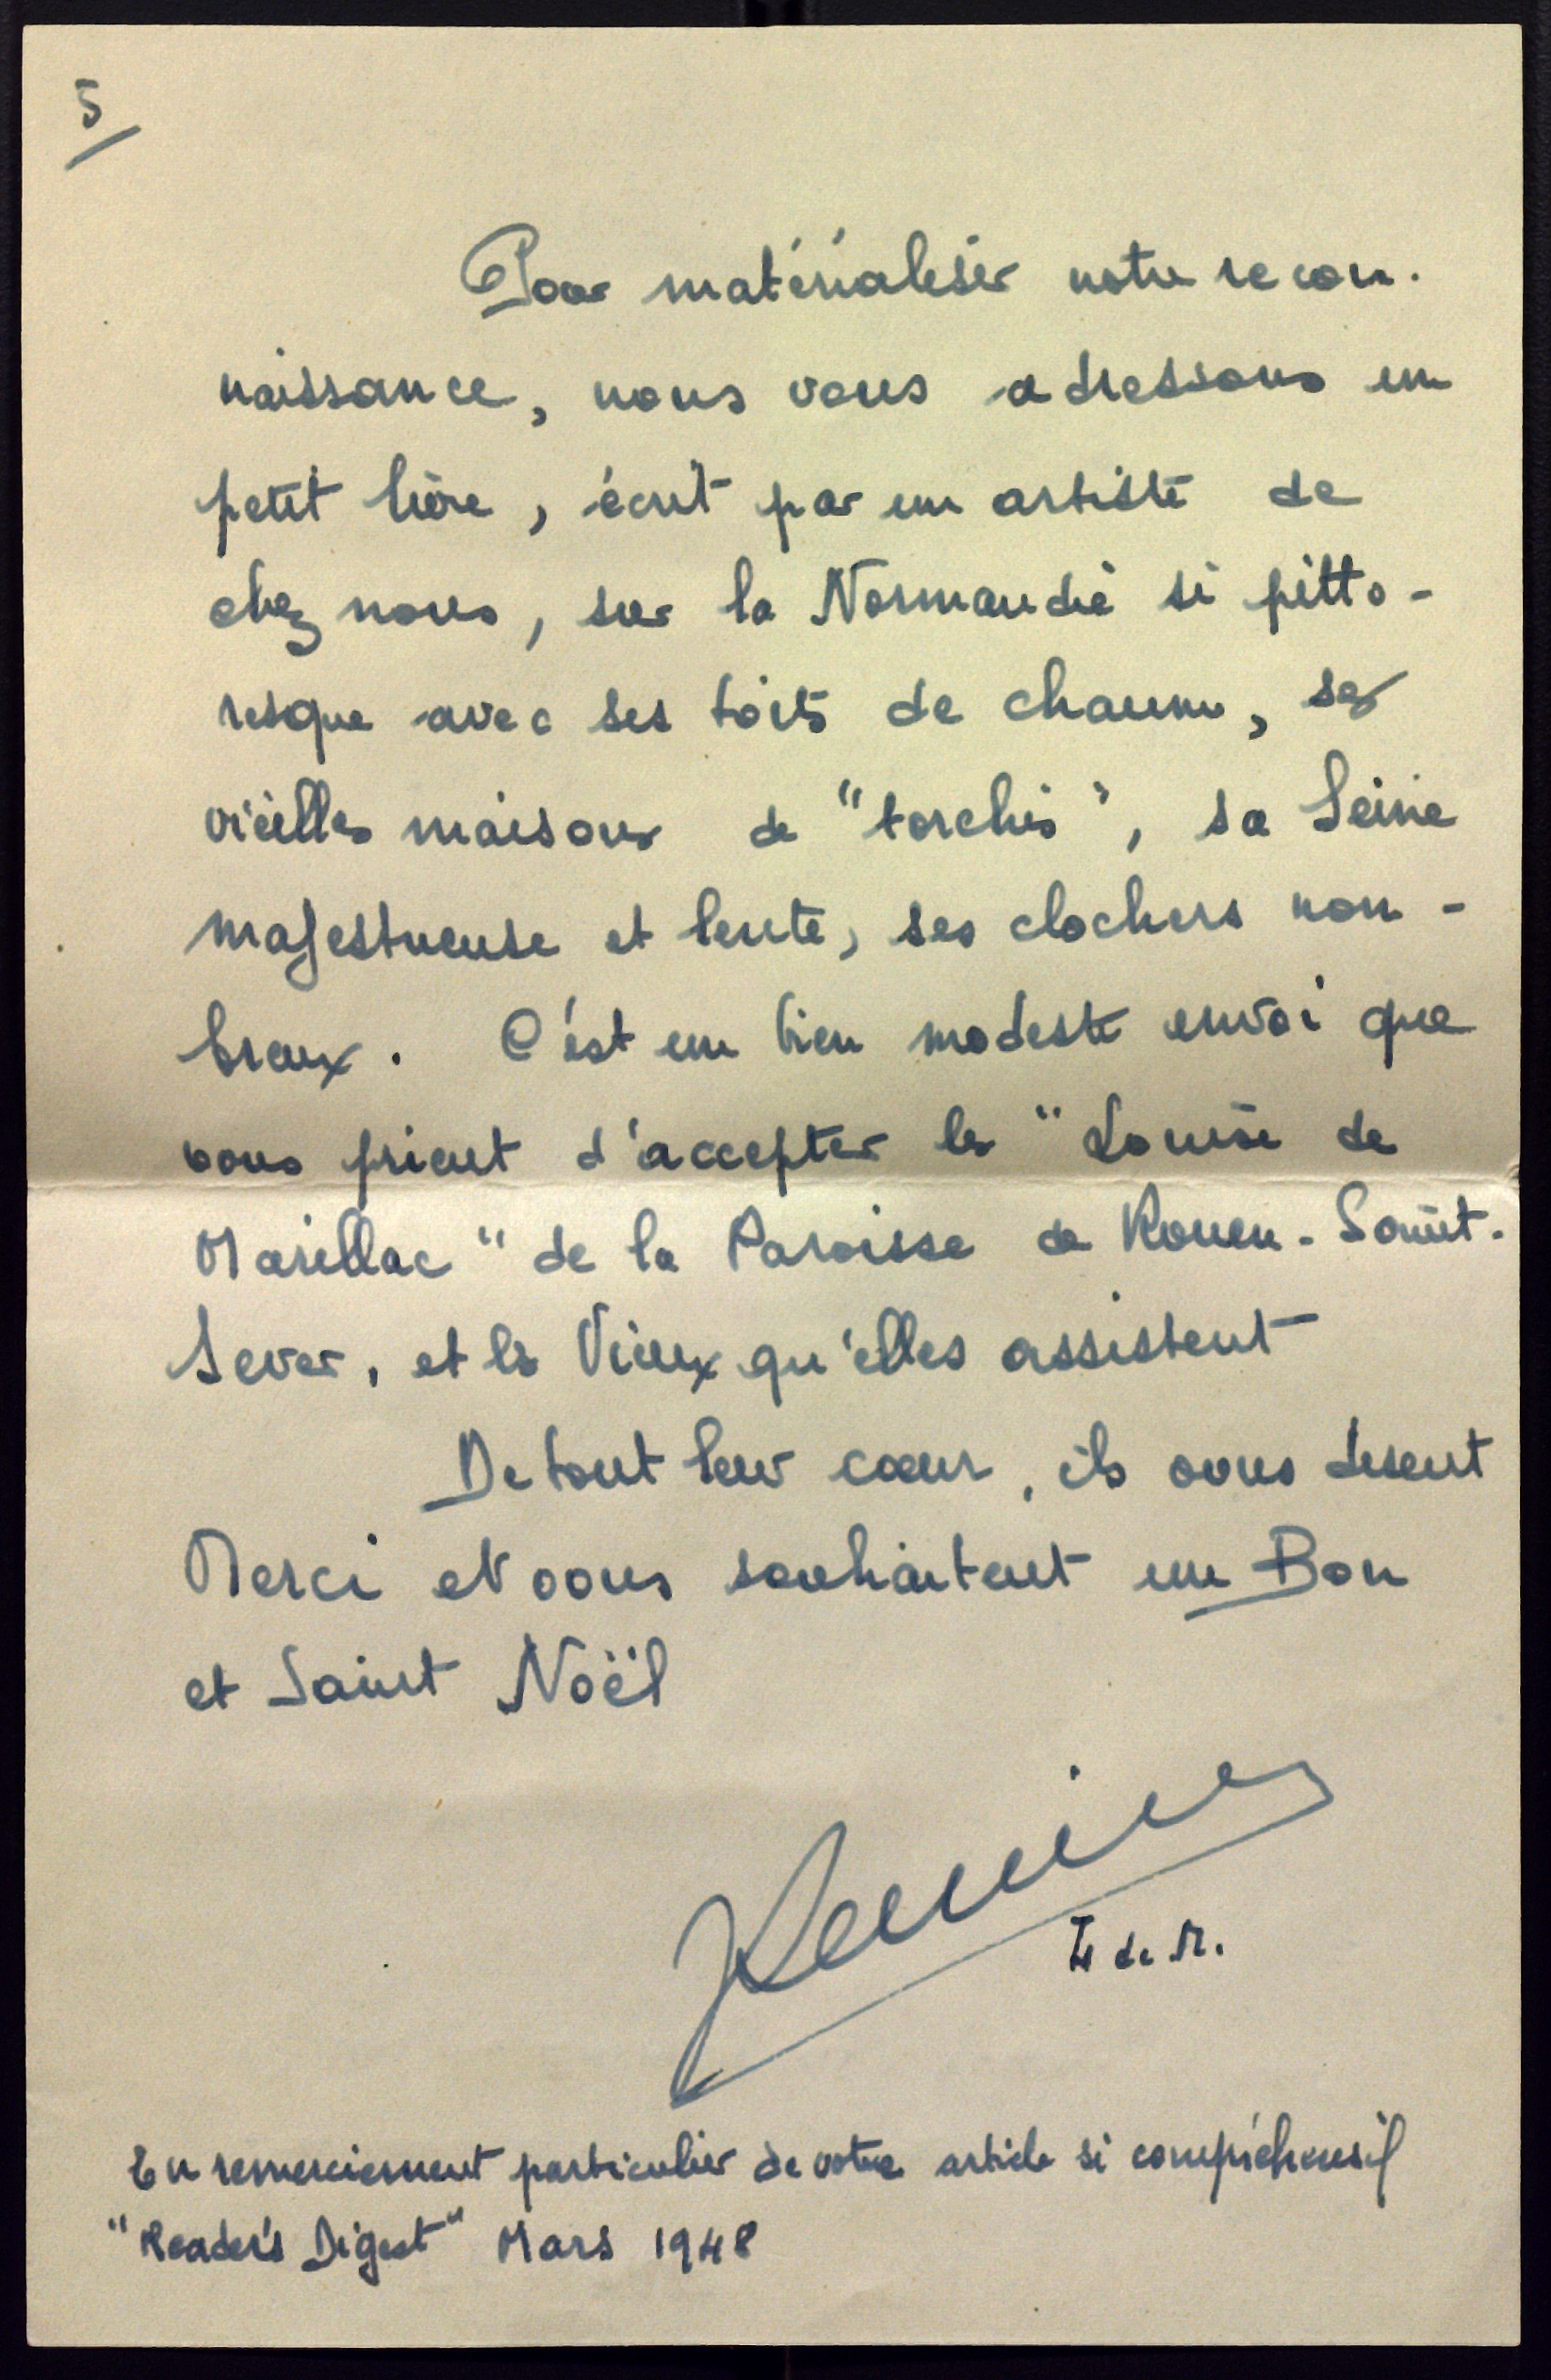 5
Pour matérialiser notre recon.
naissance, nous vous adressons un
petit livre, écrit par un artiste de
chez nous, sur la Normandie si pitto-
resque avec ses toits de chaume, ses
vieilles maisons de "torchis", sa Seine
majestueuse et lente, ses clochers nom-
breux. C'est un bien modeste envoi que
vous prient d'accepter les "Louise de
Marillac" de la Paroisse de Rouen-Saint-
Sever, et les Vieux qu'elles assistent
De tout leur cœur, ils vous disent
Merci et vous souhaitent un Bon
et Saint Noël
L de M.
En remerciement particulier de votre article si compréhensif
"Reader's Digest" Mars 1948